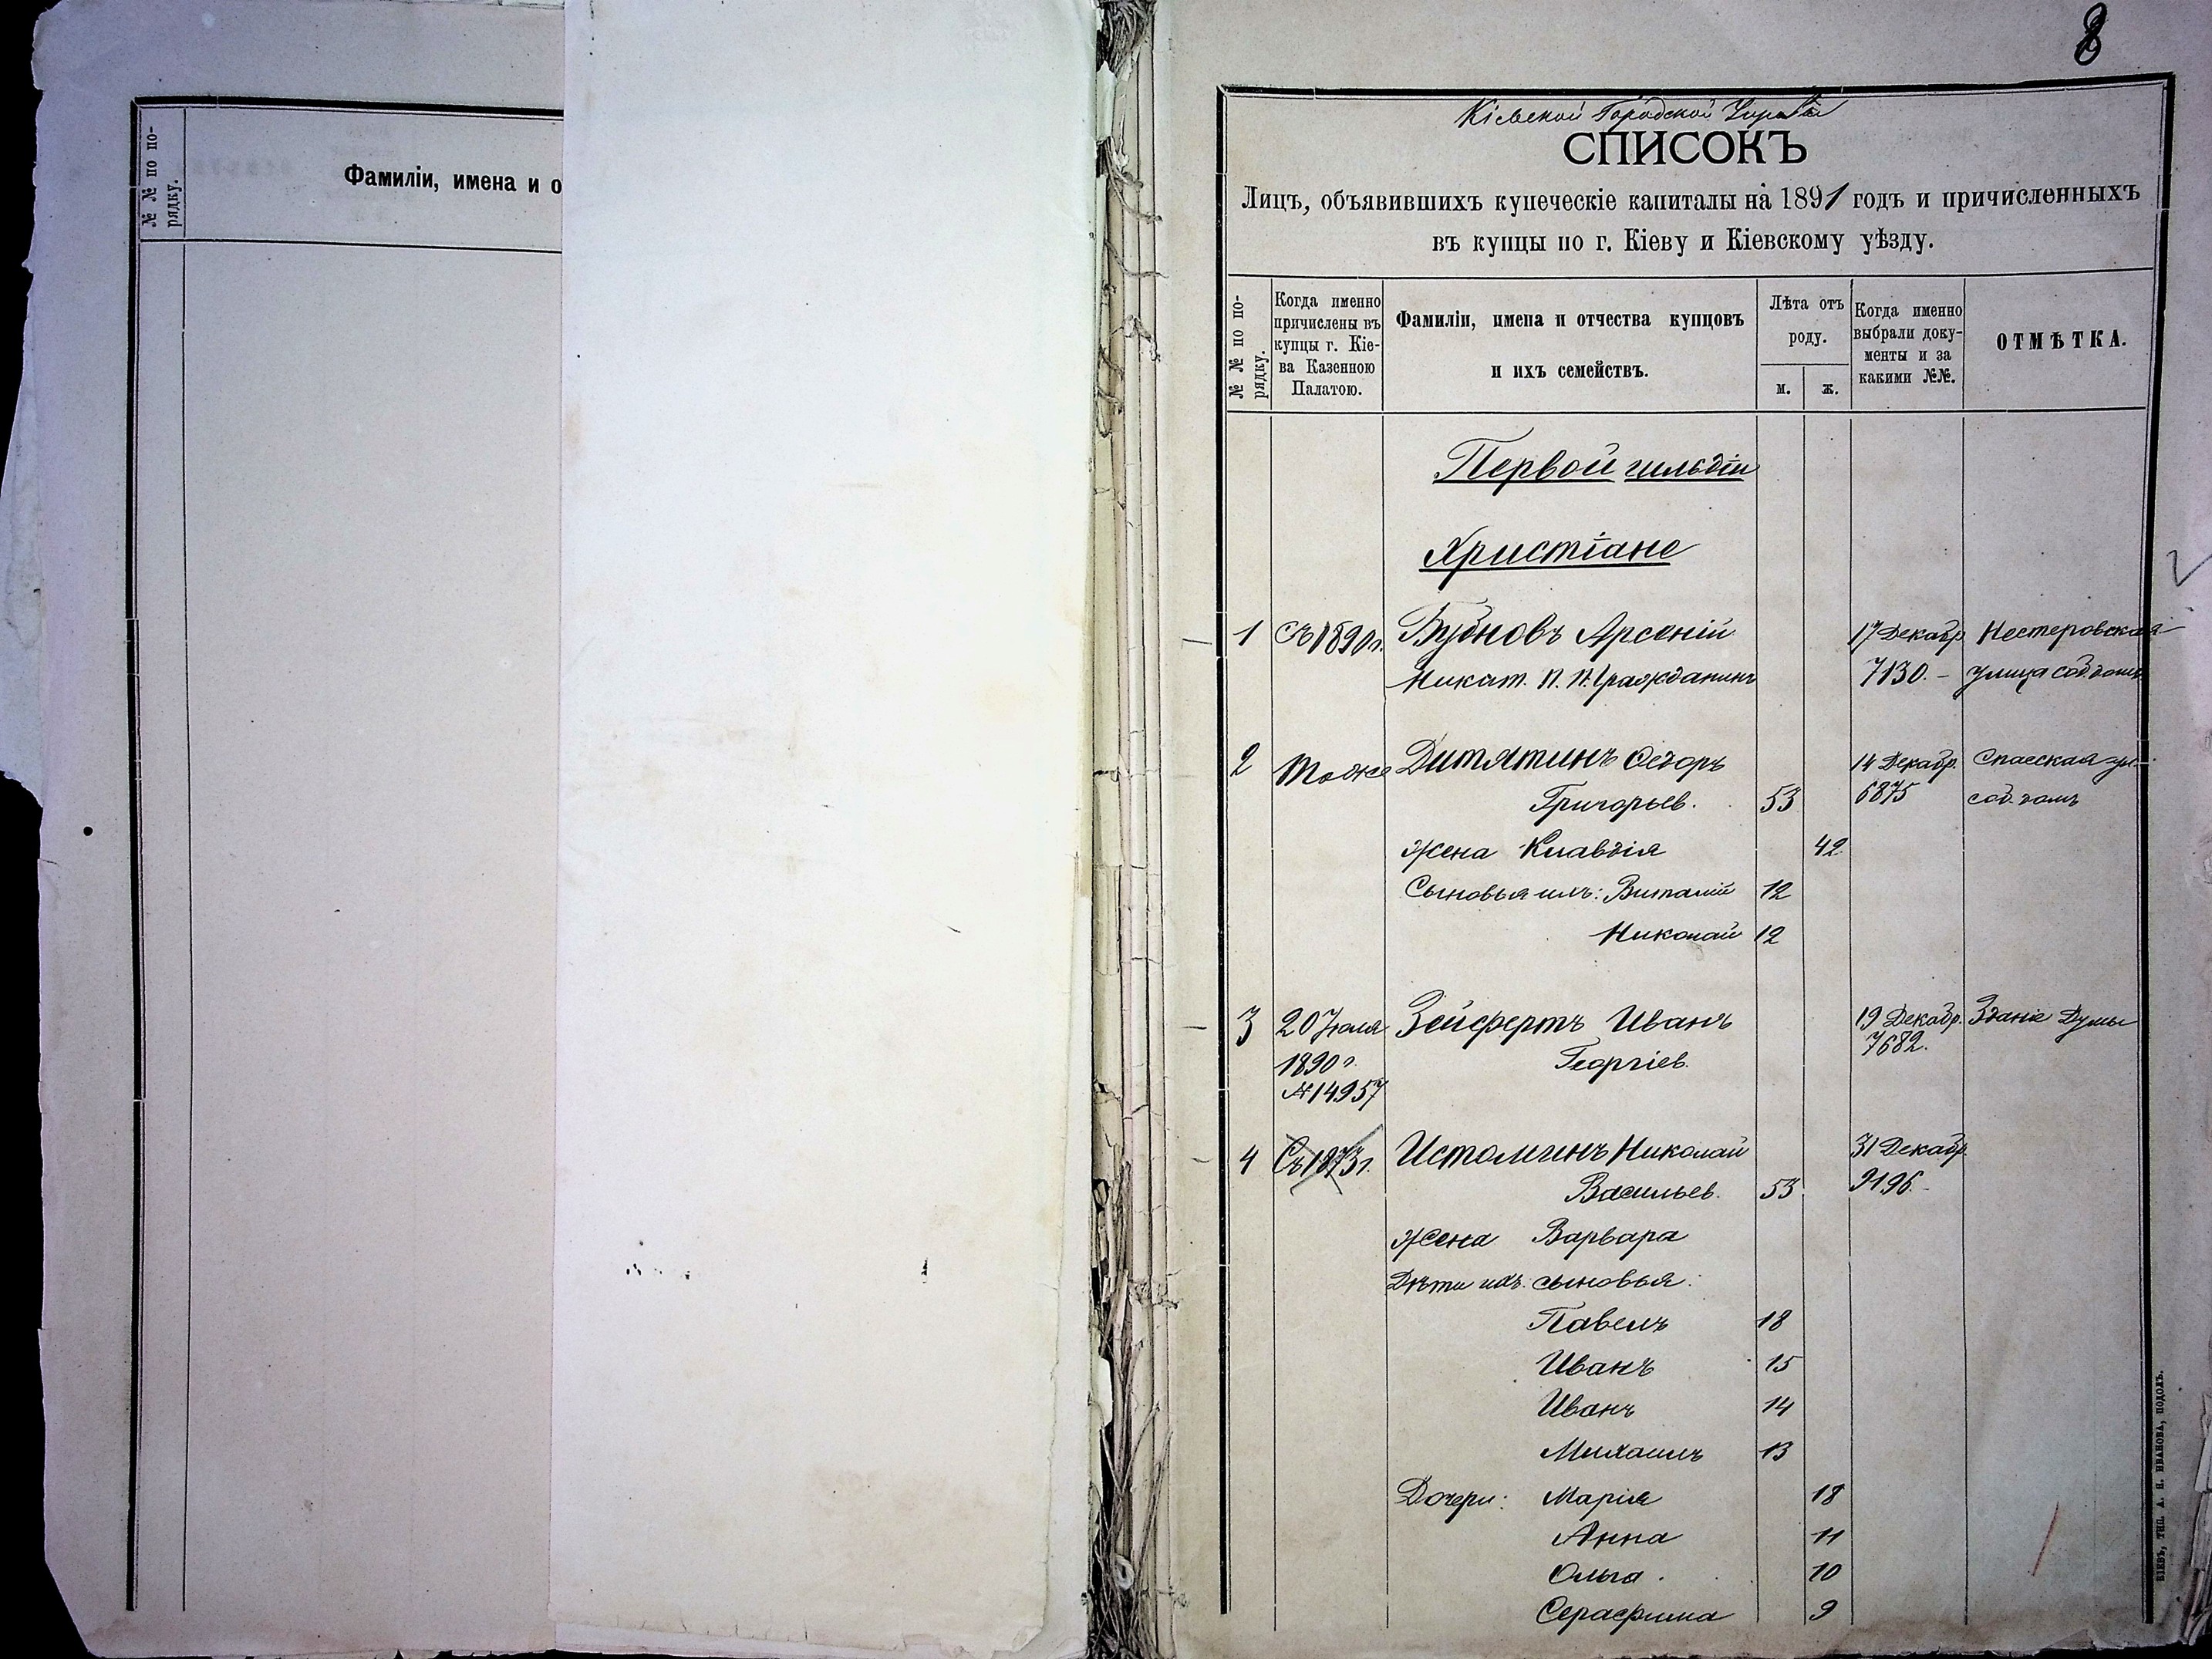 № № по по-
рядку.
Фамиліи, имена и о
8
Кіевской Городской Управы
СПИСОКЪ
Лицъ, объявившихъ купеческіе капиталы на 1891 годъ и причисленныхъ
въ купцы по г. Кіеву и Кіевскому уѣзду.
№ № по по-
рядку.
Когда именно
причислены въ
купцы г. Кіе-
ва Казенною
Палатою.
Фамиліи, имена и отчества купцовъ
и ихъ семействъ.
Лѣта отъ
роду.
м. ж.
Когда именно
выбрали доку-
менты и за
какими №№.
ОТМѢТКА.
Первой гильдіи
Христіане
1 Съ 1890 г. Бубновъ Арсеній 17 Декабр. Нестеровская
Никит. П. П. Гражданинъ 7130. - улица соб. домъ
2 Тоже Дитятинъ Ѳедоръ 14 Декабр. Спасская ул.
Григорьев. 53 6875 соб. домъ
Жена Клавдія 42
Сыновья ихъ: Виталій 12
Николай 12
3 20 Іюля Зейфертъ Иванъ 19 Декабр. Зданіе Думы
1890 г. Георгіев. 7682.
№ 14957
4 Съ 1873 г. Истоминъ Николай 31 Декабр.
Васильев. 53 9196. -
Жена Варвара
Дѣти ихъ: сыновья:
Павелъ 18
Иванъ 15
Иванъ 14
Михаилъ 13
Дочери: Марія 18
Анна 11
Ольга. 10
Серафима 9
КІЕВЪ, ТИП. А. Н. ИВАНОВА, ПОДОЛЪ.